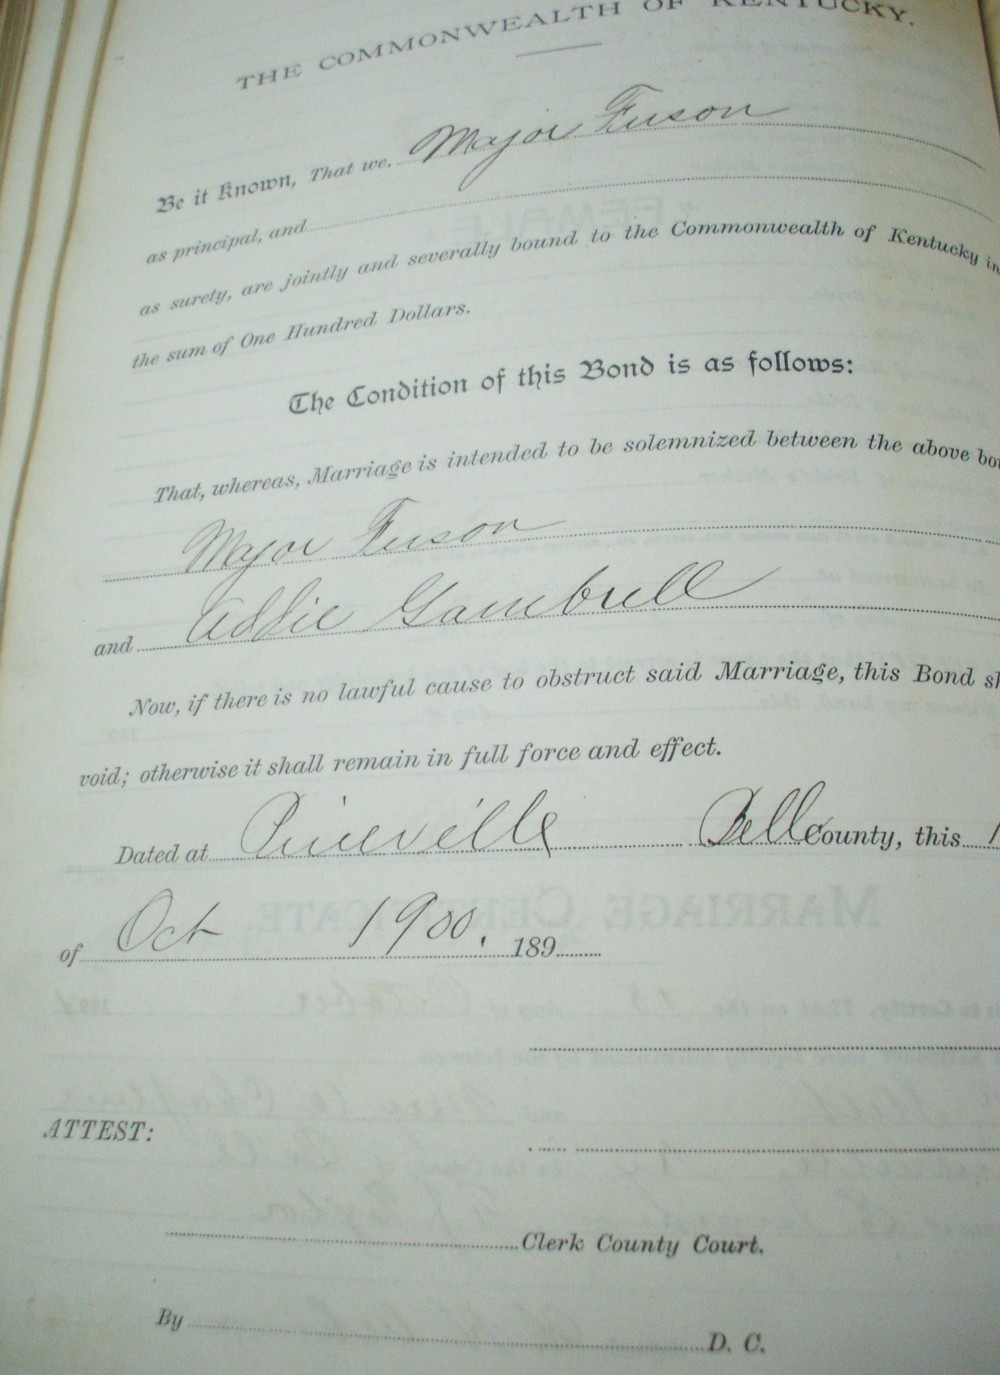 THE COMMONWEALTH OF KENTUCKY.
Be it Known, That we, Major Fuson
as principal, and
as surety, are jointly and severally bound to the Commonwealth of Kentucky in
the sum of One Hundred Dollars.
The Condition of this Bond is as follows:
That, whereas, Marriage is intended to be solemnized between the above bou
Major Fuson
and Addie Gambrell
Now, if there is no lawful cause to obstruct said Marriage, this Bond sh
void; otherwise it shall remain in full force and effect.
Dated at Pineville Bell County, this 1
of Oct 1900. 189
ATTEST:
Clerk County Court.
By D. C.